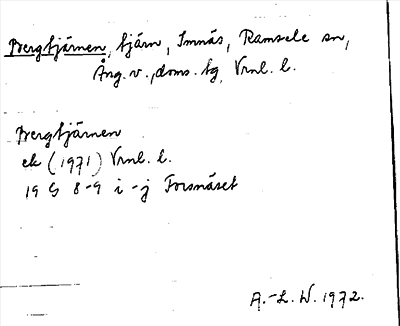 Bergtjärnen, tjärn, Imnäs, Ramsele sn,
Ång. v., doms. tg, Vrnl. l.
Bergtjärnen
ek (1971) Vrnl. l.
19 G 8-9 i-j Forsnäset
A.-L. W. 1972.